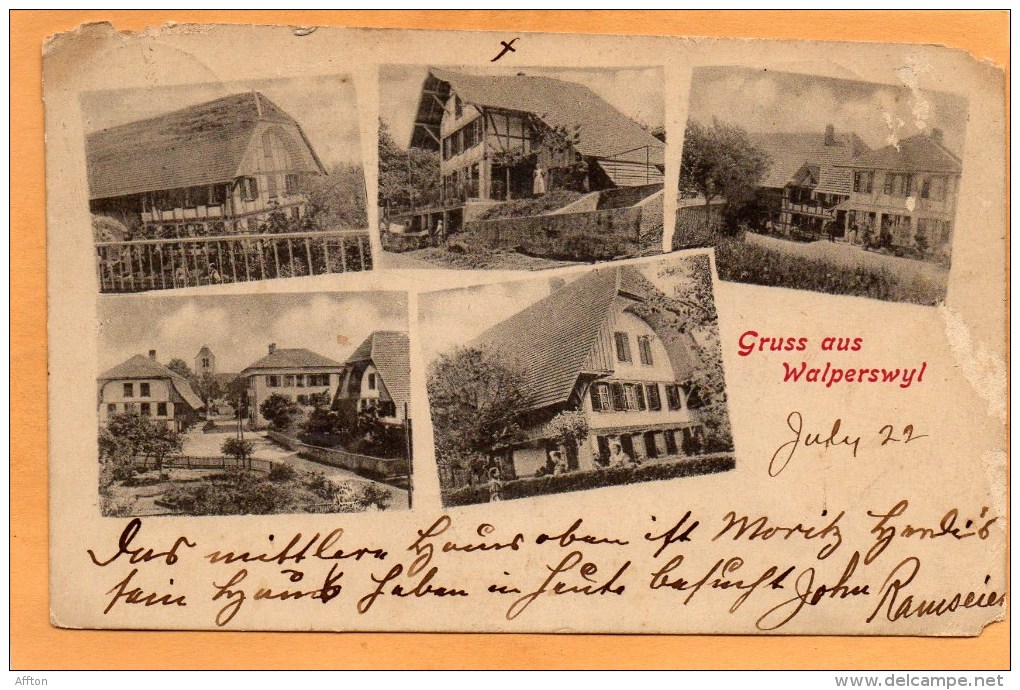 x
Gruss aus
Walperswyl
July 22
Das mittlere Haus oben ist Moritz
sein Haus haben in heute besucht John Ramseier
Affton
www.delcampe.net